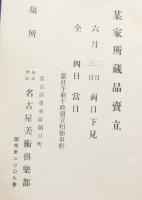 某家所藏品賣立
六月二日三日 兩日下見
仝 四日 當日
(當日午前十時賣立相始申候)
場所
名古屋市東區朝日町
株式會社 名古屋美術俱樂部